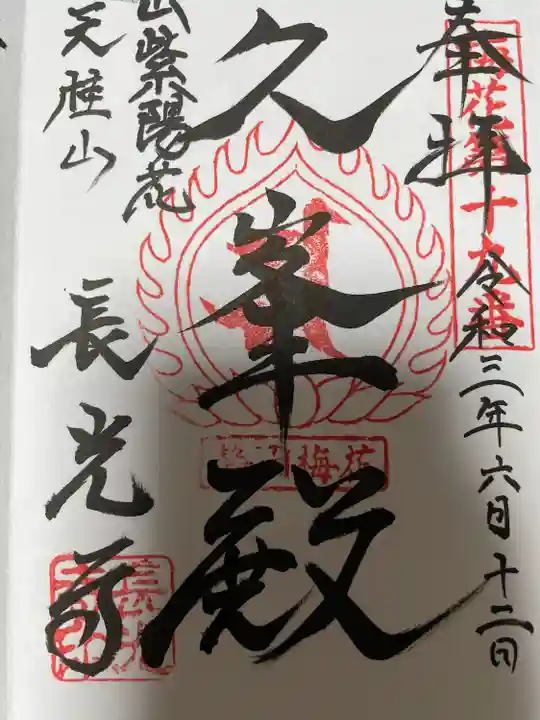 奉拝
令和三年六月十二日
久峯殿
山紫陽花
天桂山
長光寺